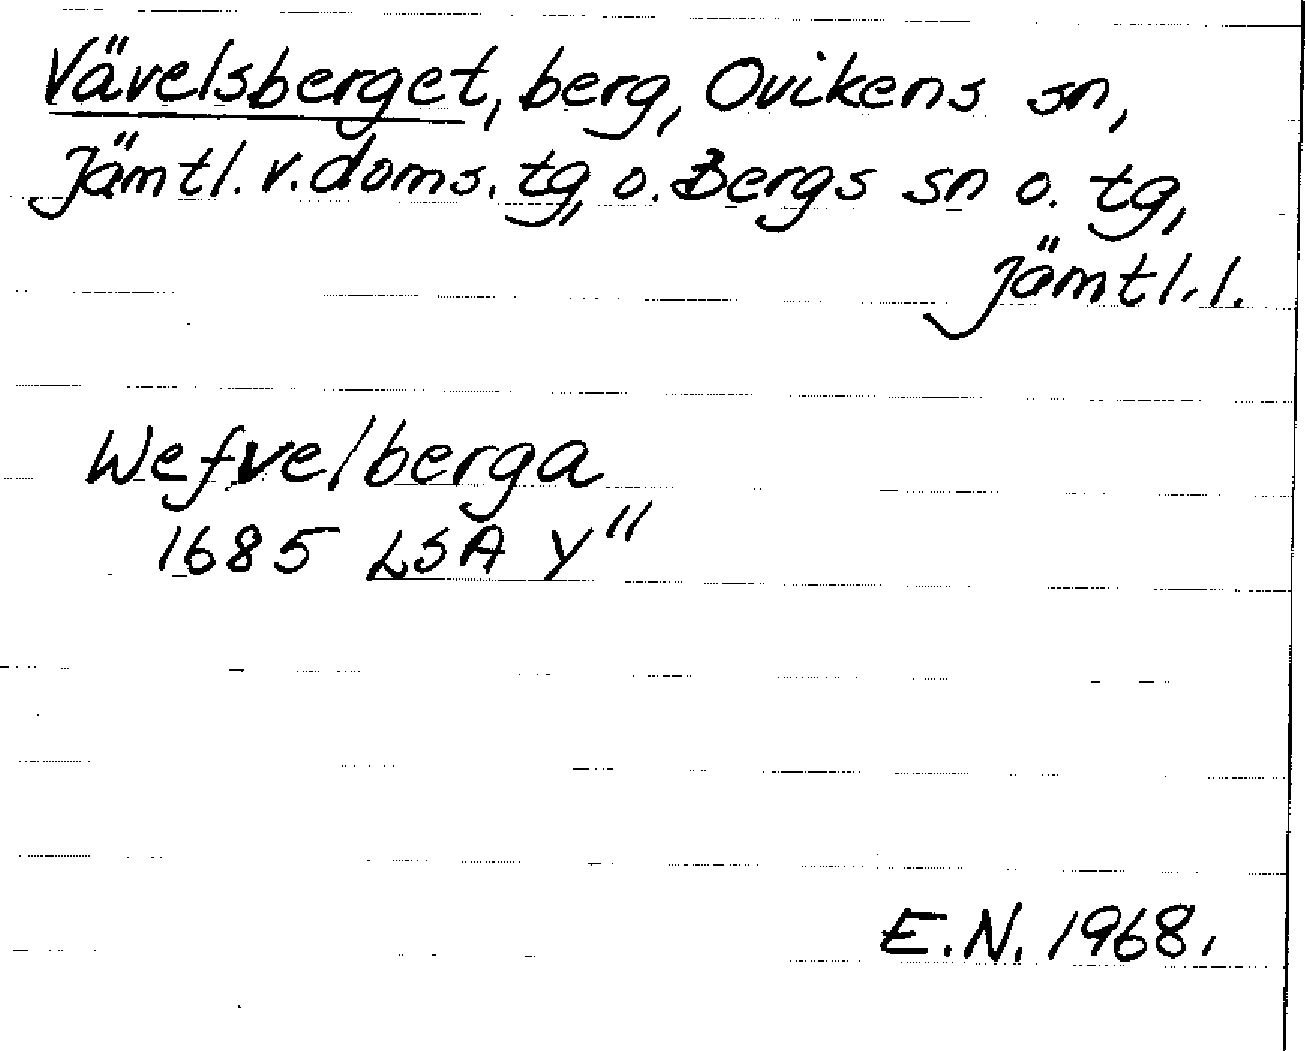 Vävelsberget, berg, Ovikens sn,
Jämtl. v. doms. tg, o. Bergs sn o. tg,
Jämtl. l.
Wefvelberga
1685 LSA Y"
E.N. 1968.